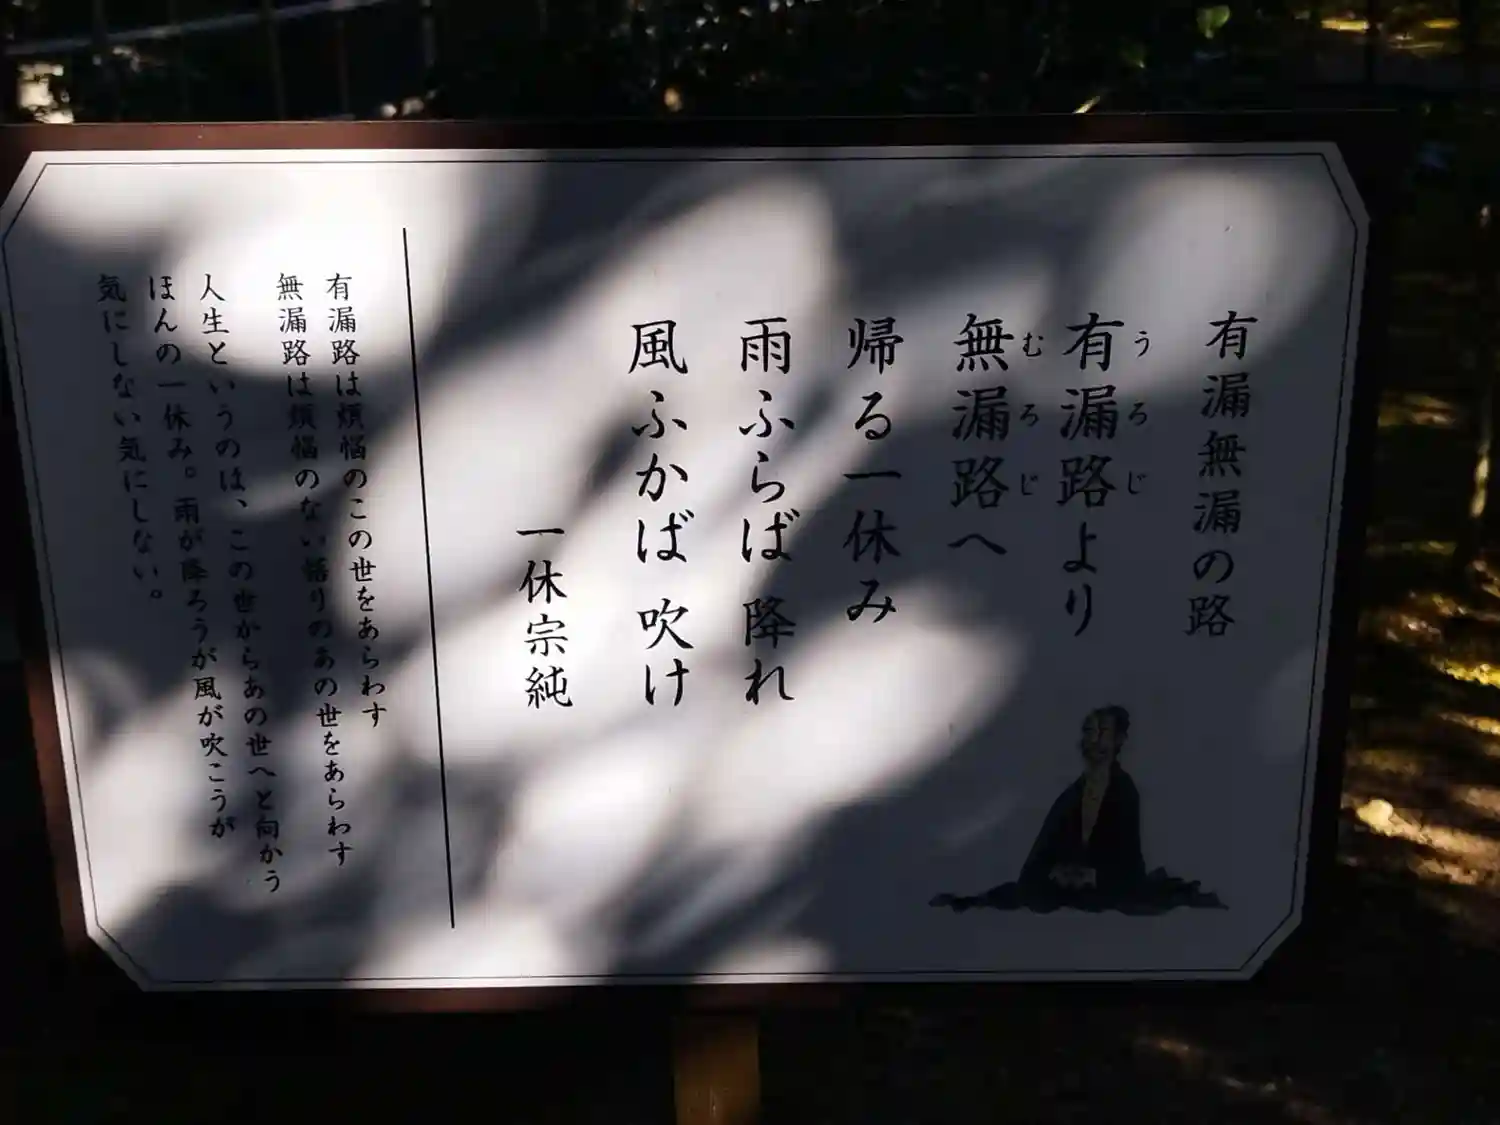 有漏無漏の路
有漏路より
うろじ
無漏路へ
むろじ
帰る一休み
雨ふらば 降れ
風ふかば 吹け
一休宗純
有漏路は煩悩のこの世をあらわす
無漏路は煩悩のない悟りのあの世をあらわす
人生というのは、この世からあの世へと向かう
ほんの一休み。雨が降ろうが風が吹こうが
気にしない気にしない。